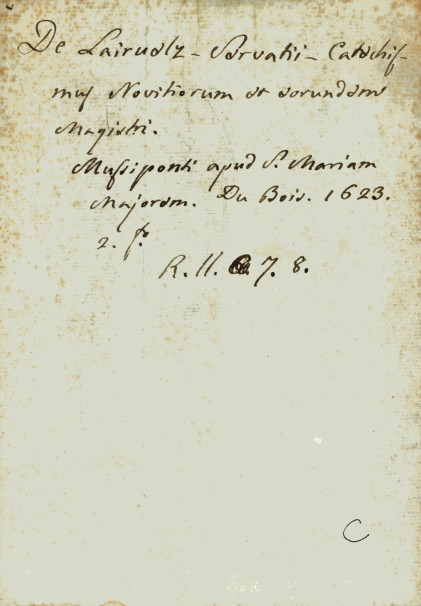 De Lairuelz - Servatii - Catechis-
mus Novitiorum et eorundem
Magistri.
Mussiponti apud S. Mariam
Majorem. Du Bois. 1623.
2. f.
R. 11. 7. 8.
C